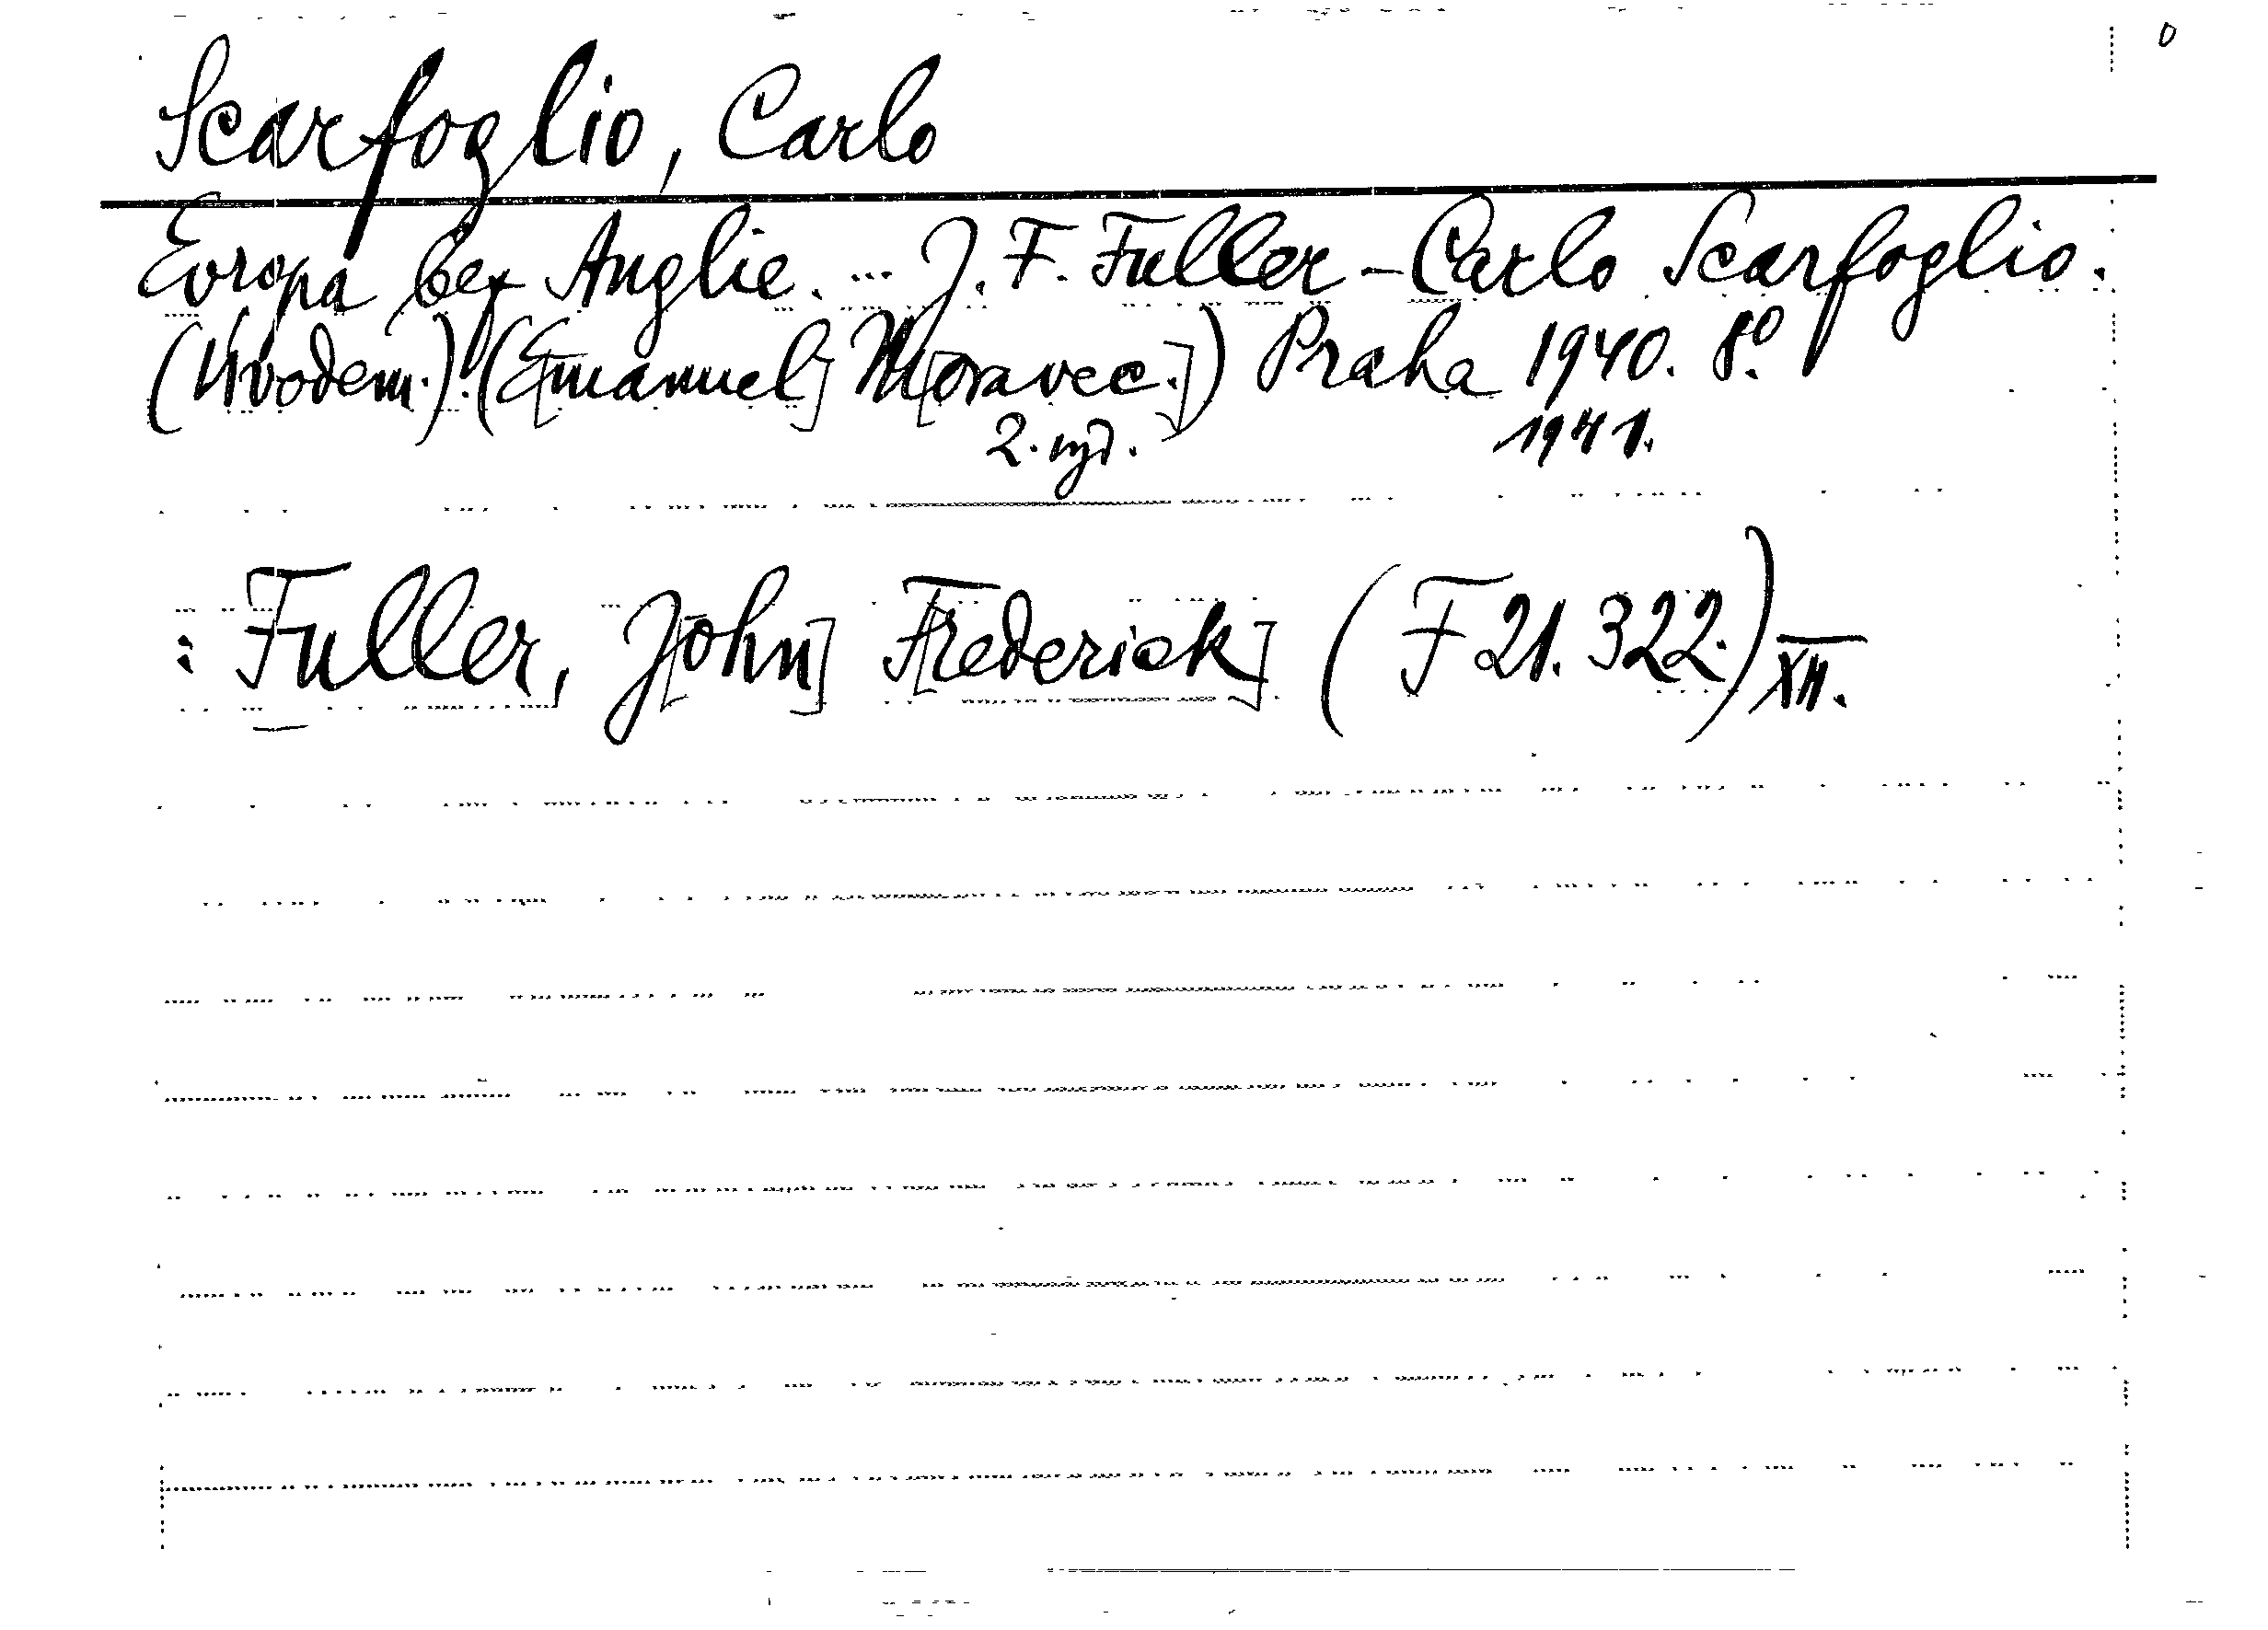 0
Scarfoglio, Carlo
Evropa bez Anglie. ... J. F. Fuller - Carlo Scarfoglio.
(Úvodem.) (E[manuel] M[oravec.]) Praha 1940. 8°.
2. vyd. 1941.
: Fuller, J[ohn] F[rederick] (F 21.322.) XII.